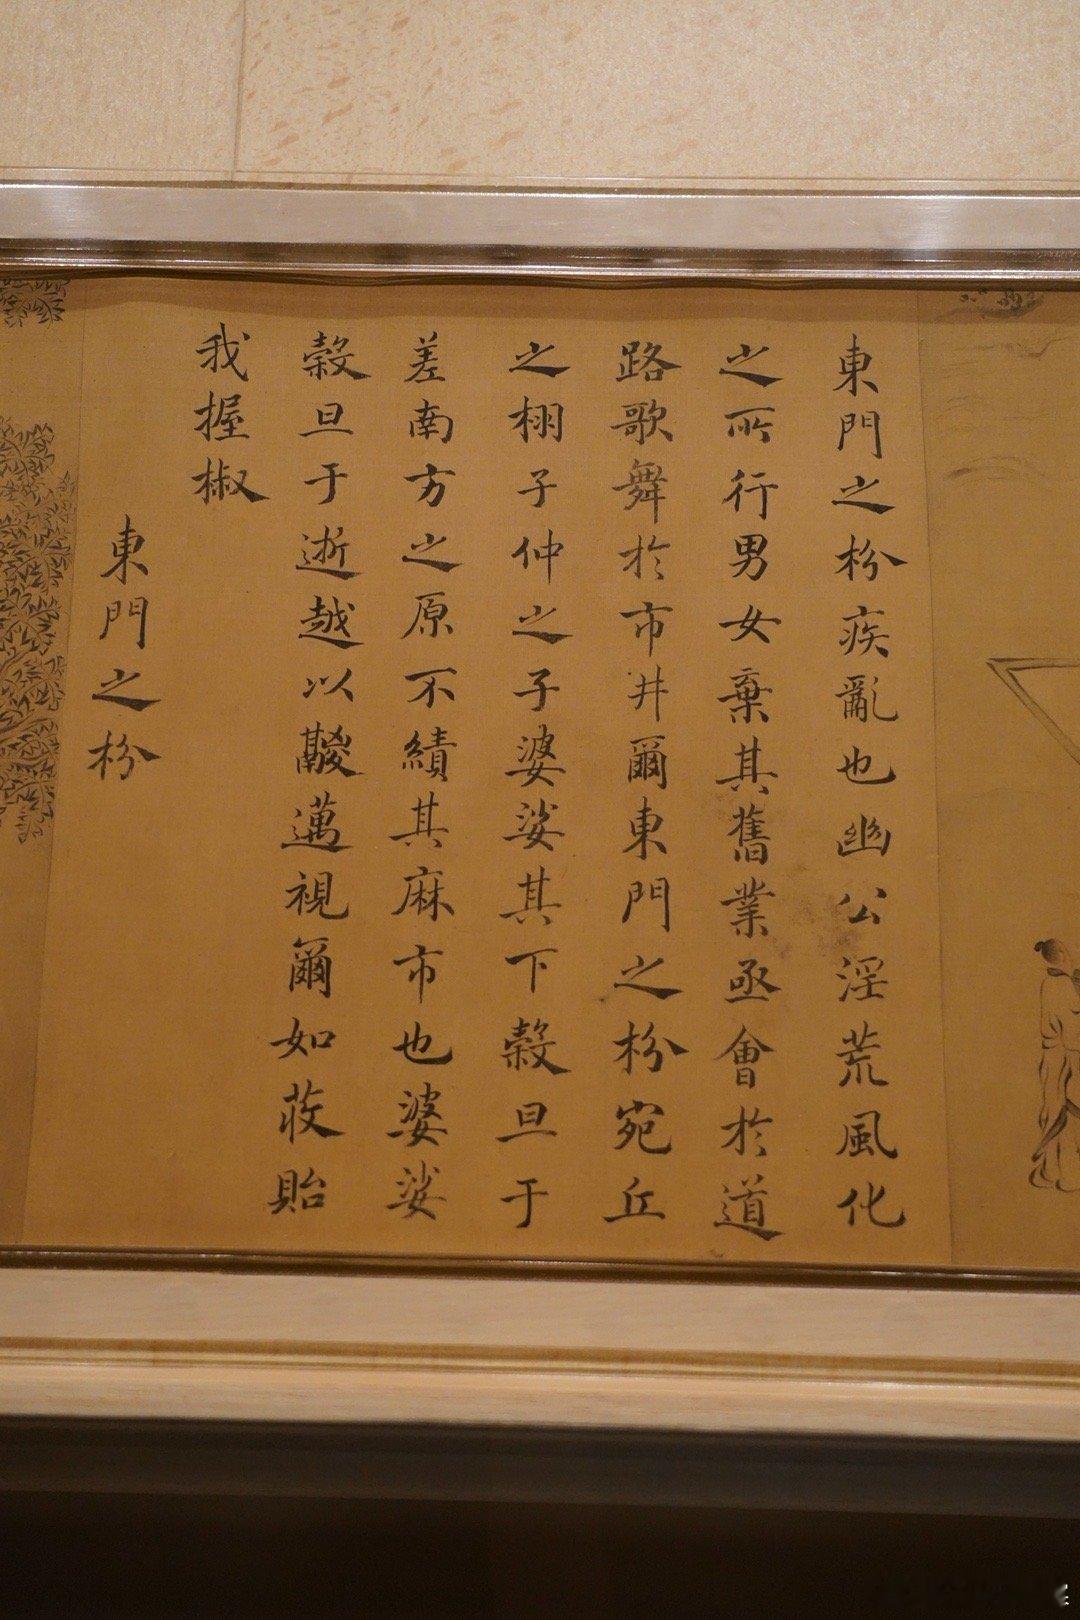 東門之枌疾亂也幽公淫荒風化
之所行男女棄其舊業亟會於道
路歌舞於市井爾東門之枌宛丘
之栩子仲之子婆娑其下穀旦于
差南方之原不績其麻市也婆娑
穀旦于逝越以鬷邁視爾如荍貽
我握椒
東門之枌